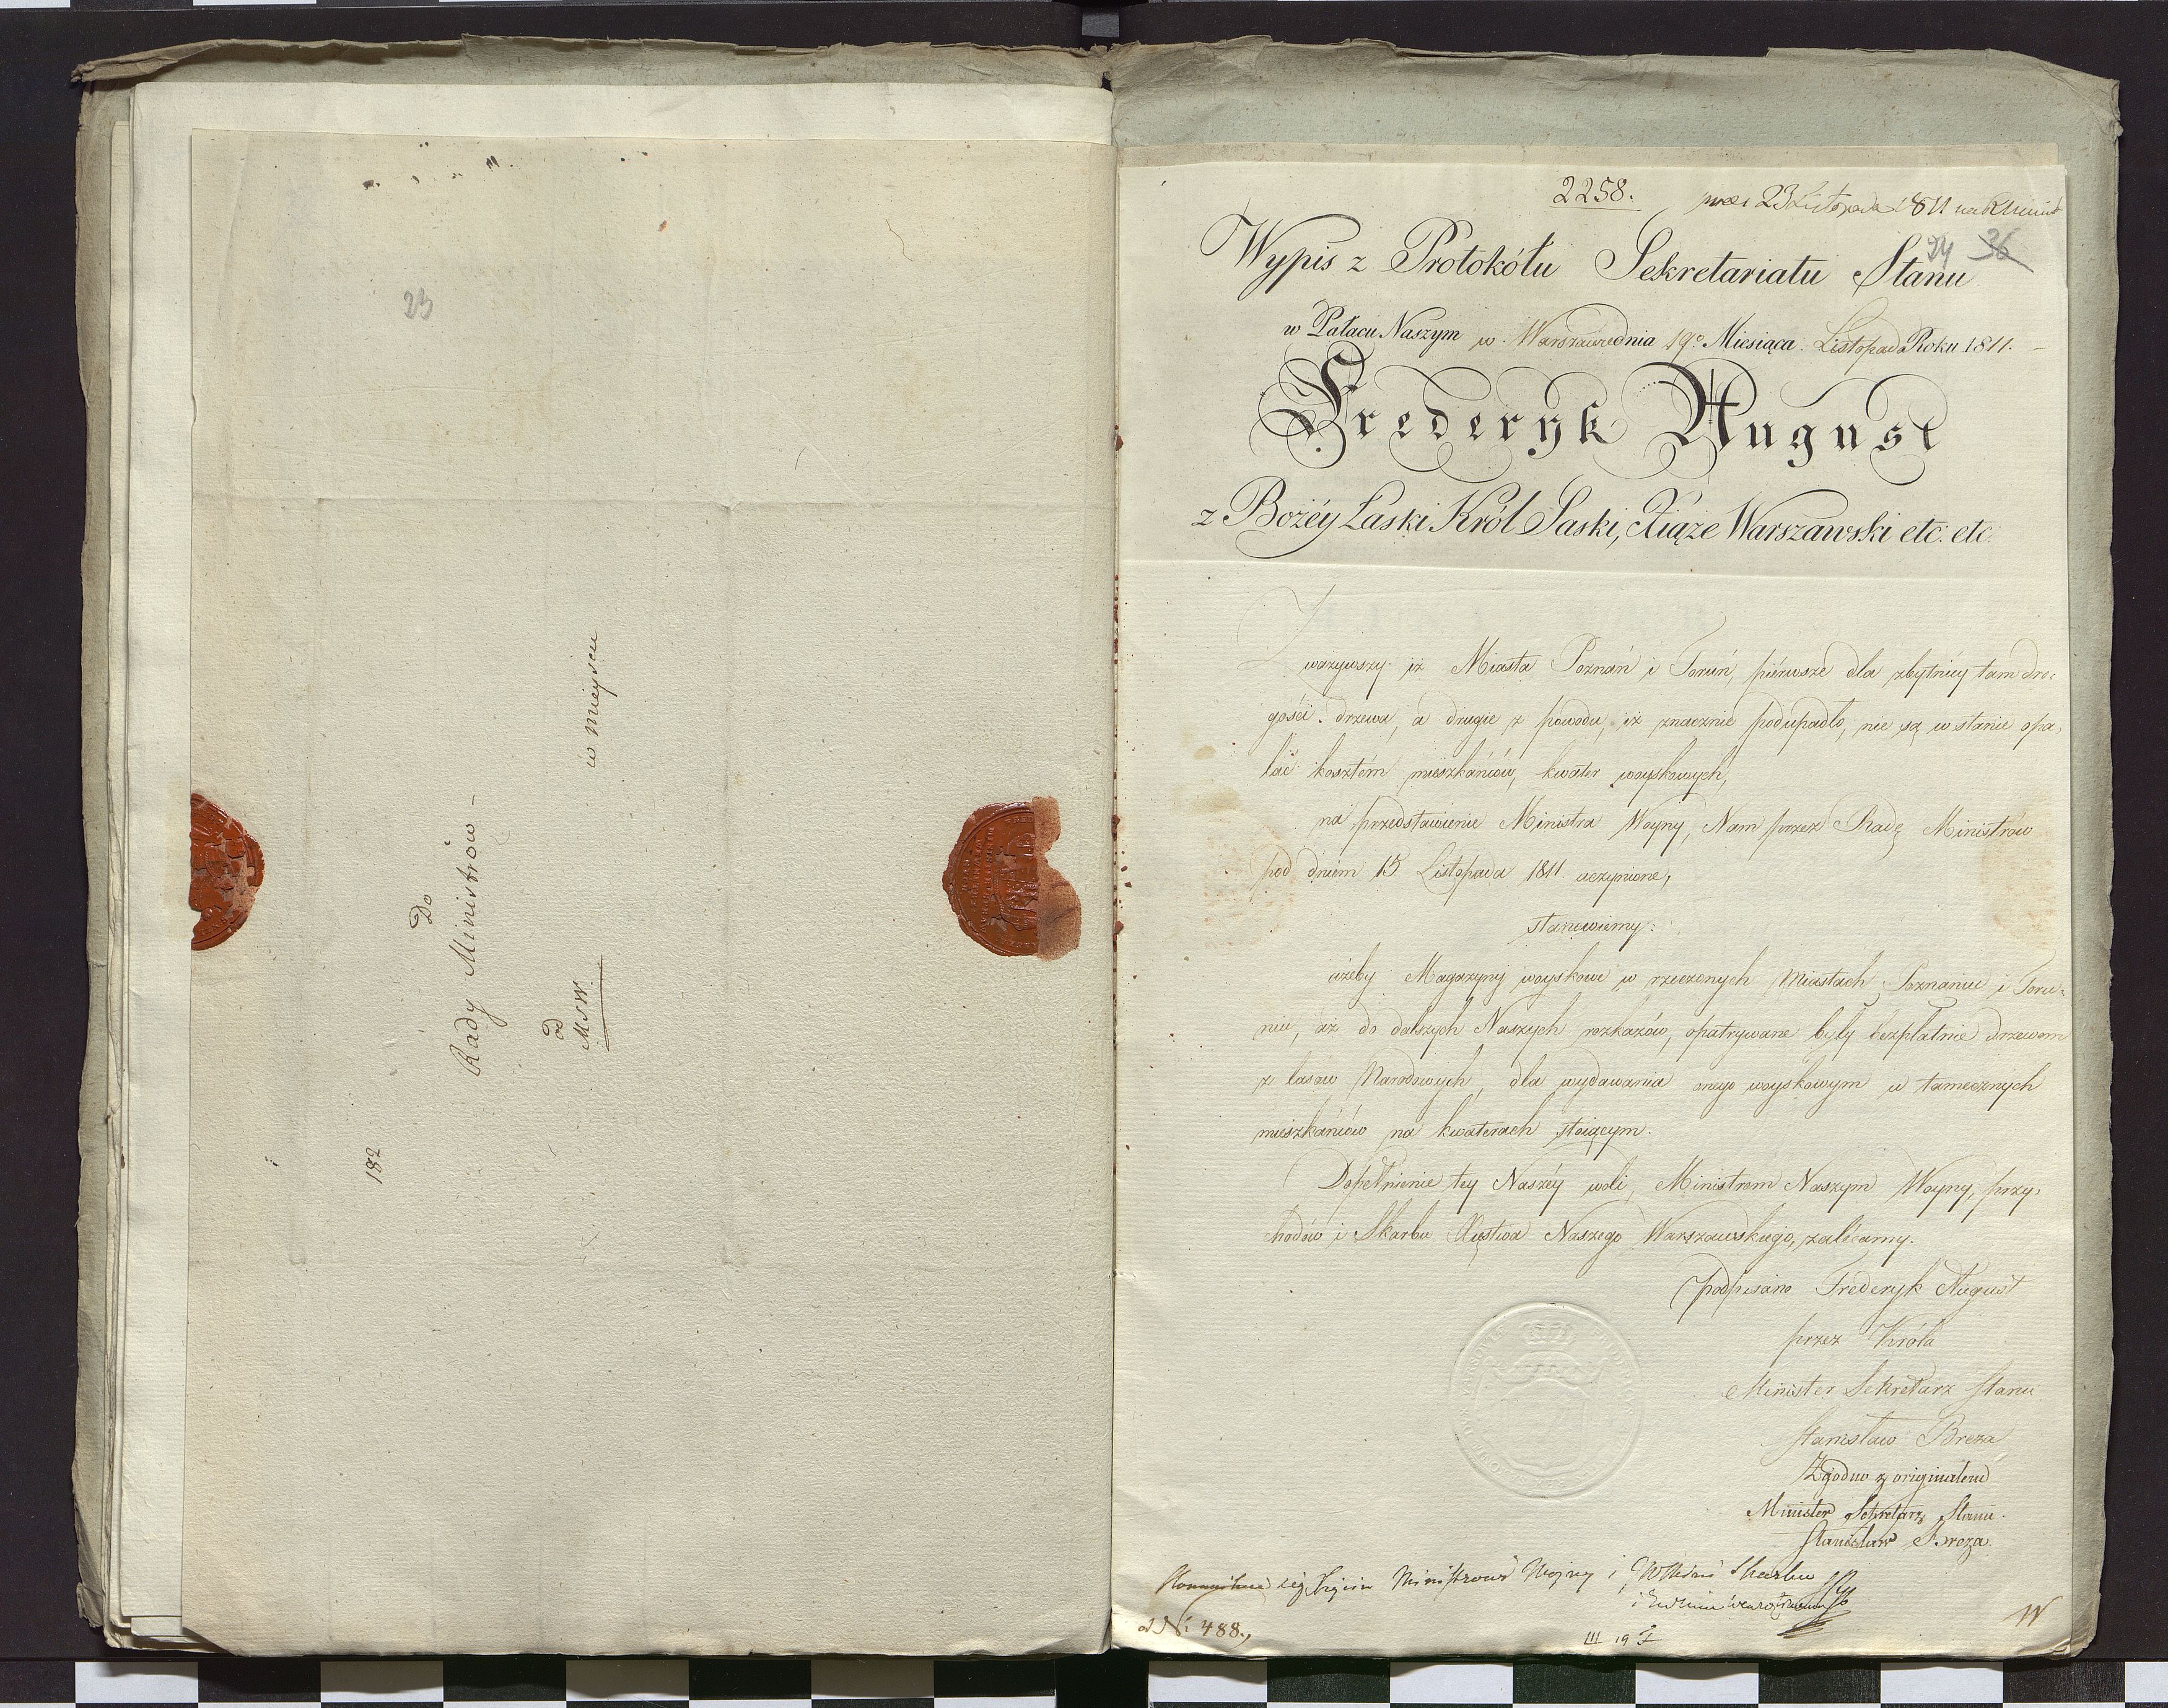 23
Do
Rady Ministrów
w mieyscu
od
MSW.
182
2258.
23 Listopada 1811
24 36
Wypis z Protokółu Sekretariatu Stanu
w Pałacu Naszym w Warszawie dnia 19° Miesiąca Listopada Roku 1811.
Frederyk August
z Bożéy Łaski Król Saski, Xiąże Warszawski etc: etc:
Zważywszy iż Miasta Poznań i Toruń, piérwsze dla zbytniéy tam dro:
gości drzewa, a drugie z powodu, iż znacznie podupadło, nie są w stanie opa,
lać kosztem mieszkańców, kwater woyskowych,
na przedstawienie Ministra Woyny, Nam przez Radę Ministrów
pod dniem 15 Listopada 1811. uczynione,
stanowiemy:
ażeby Magazyny woyskowe w rzeczonych Miastach Poznaniu i Toru:
niu, aż do dalszych Naszych rozkazów, opatrywane były bezpłatnie drzewem
z lasów Narodowych, dla wydawania onego woyskowym u tamecznych
mieszkańców na kwaterach stoiącym.
Dopełnienie téy Naszéy woli, Ministrom Naszym Woyny, przy,
chodów i Skarbu Xięstwa Naszego Warszawskiego, zalécamy.
podpisano Fréderyk August
przez Króla
Minister Sekretarz Stanu
Stanisław Breza
Zgodno z originałem
Minister Sekretarz Stanu.
Stanisław Breza
Ministrowi Woyny i Skarbu
ad N: 488.,
III 19